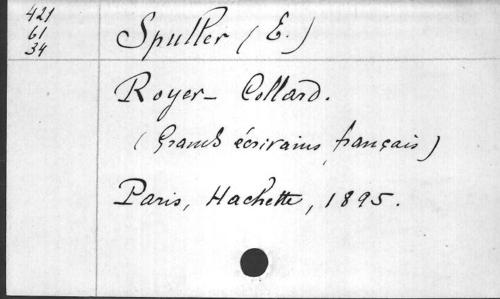 421
61
34
Spuller (E.)
Royer-Collard.
(Grands écrivains français)
Paris, Hachette, 1895.